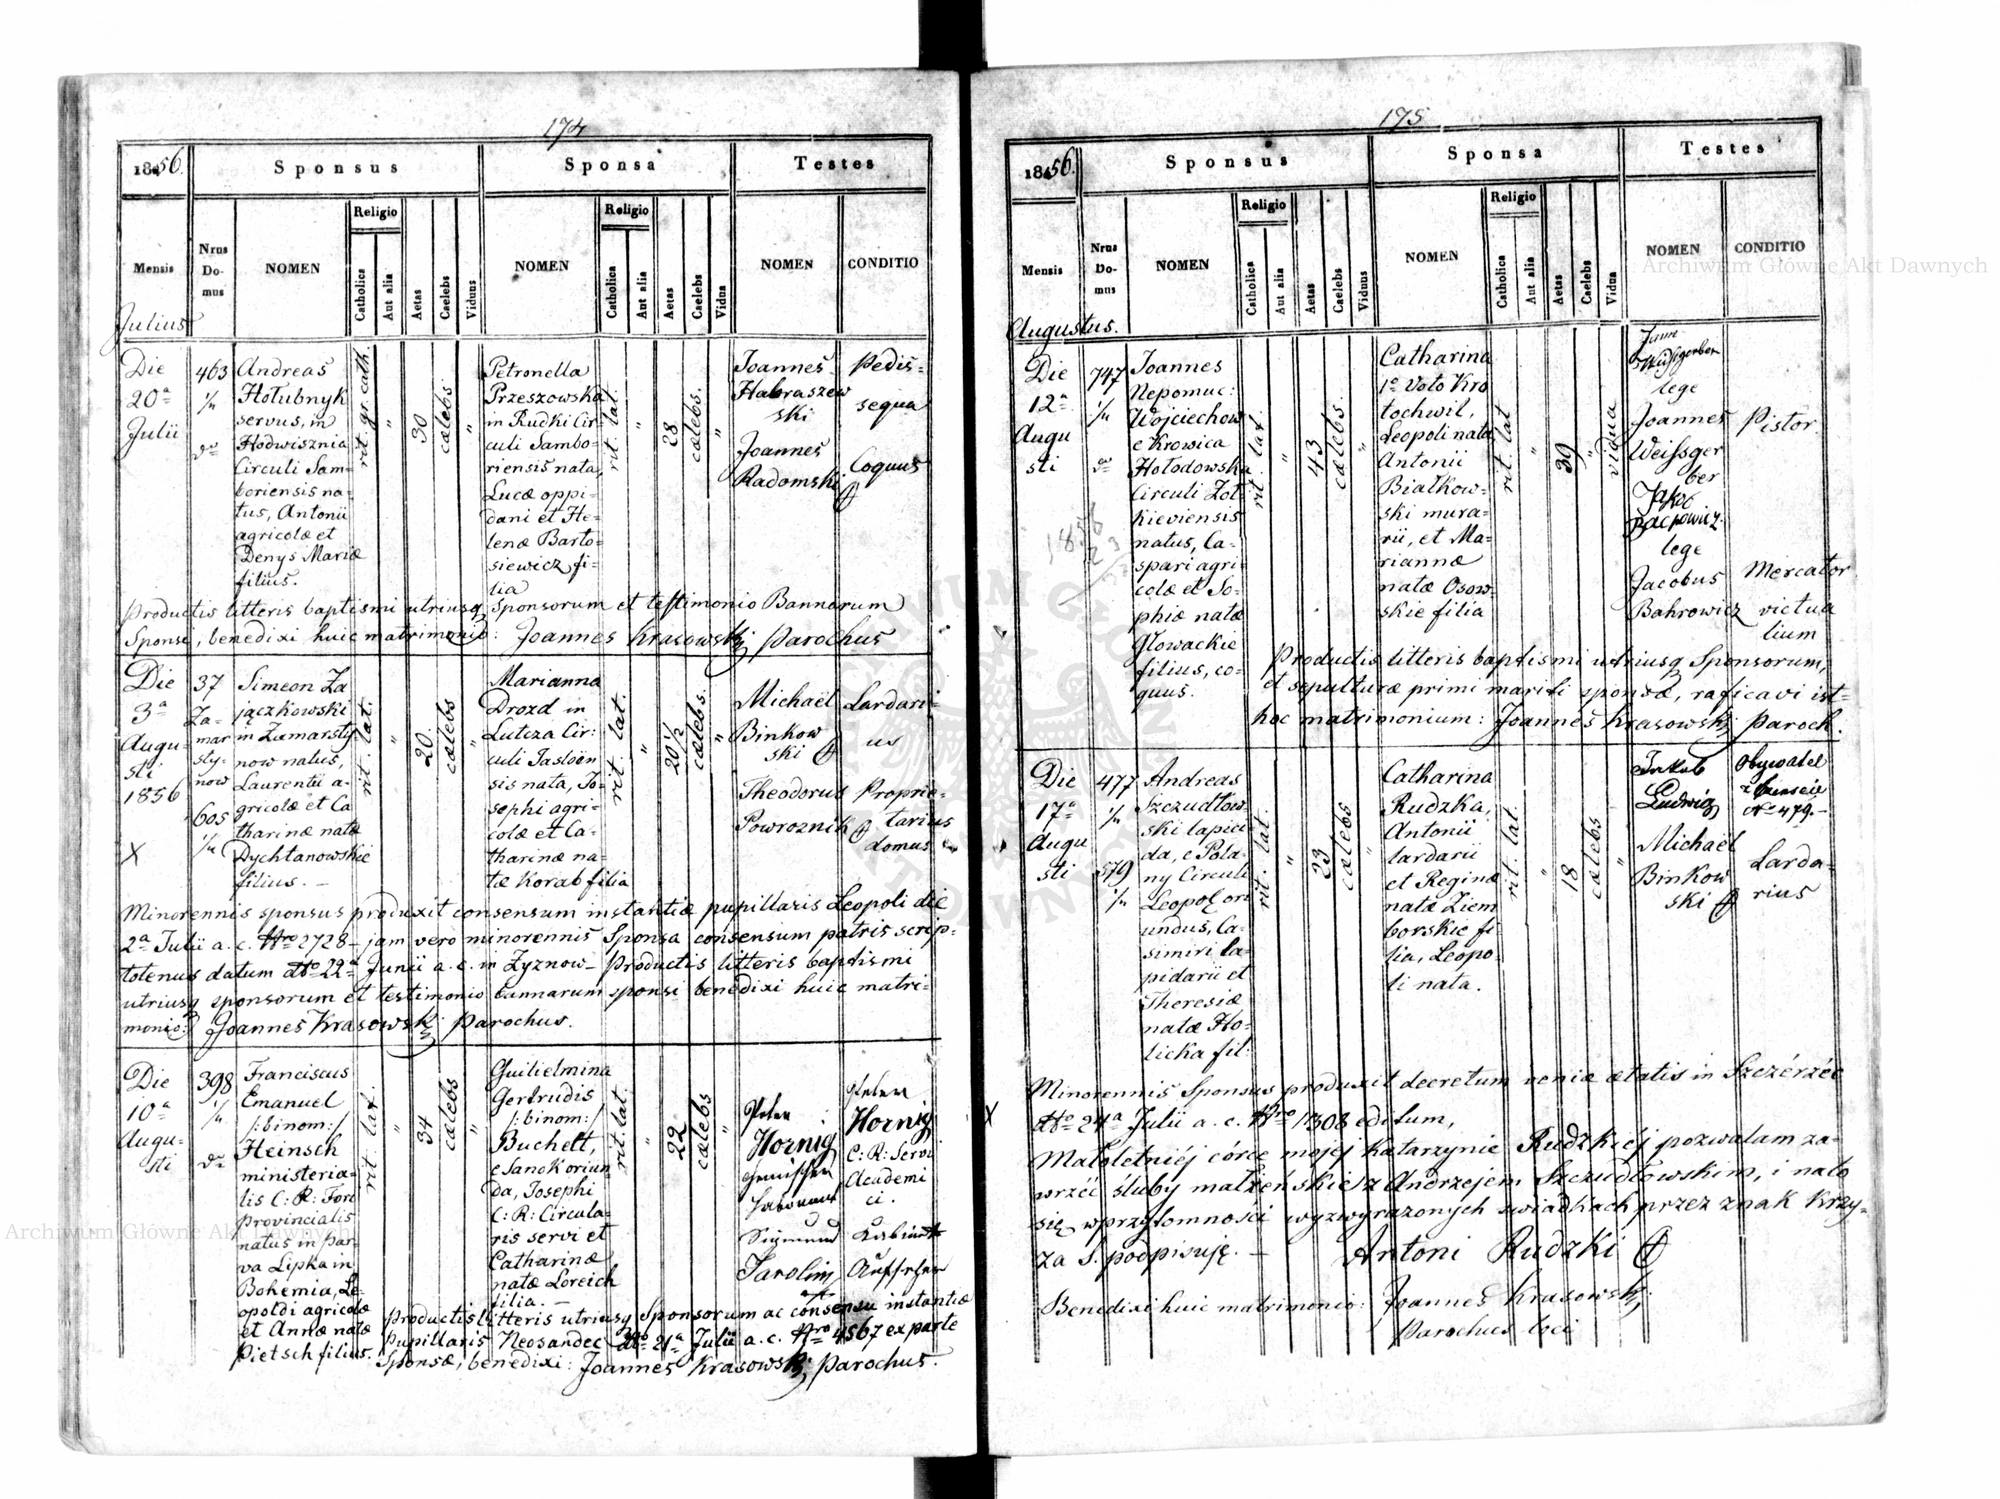 174
1856.
Sponsus
Sponsa
Testes
Mensis
Nrus Domus
NOMEN
Religio
Catholica
Aut alia
Aetas
Caelebs
Viduus
NOMEN
Religio
Catholica
Aut alia
Aetas
Caelebs
Vidua
NOMEN
CONDITIO
Julius
Die
20a
Julii
463
1/4
Andreas
Hołubnyk
servus, in
Hodwisznia
Circuli Sam=
boriensis na=
tus, Antonii
agricolæ et
Denys Mariæ
filius.
rit. gr. cath.
"
30
cælebs
"
Petronella
Przeszowska
in Rudki Cir=
culi Sambo=
riensis nata,
Lucæ oppi=
dani et He=
lenæ Barto=
siewicz fi=
lia
rit. lat.
"
28
cælebs.
"
Joannes
Habraszew
ski
Joannes
Radomski
Pedis=
sequa
Coquus
Productis litteris baptismi utriusq Sponsorum et testimonio Bannorum
Sponsi, benedixi huic matrimonio: Joannes Krasowski Parochus
Die
3a
Augu=
sti
1856
X
37
Za=
mar
sty=
now
605
1/4
Simeon Za
jączkowski
in Zamarsty
now natus,
Laurentii a=
gricolæ et Ca
tharinæ natæ
Dychtanowskie
filius. —
rit. lat.
"
20.
cælebs
"
Marianna
Drozd in
Lutcza Cir:
culi Jasloën
sis nata, Jo=
sephi agri=
colæ et Ca=
tharinæ na=
tæ Korab filia
rit. lat.
"
20 1/2
cælebs.
"
Michaël
Binkow
ski
Theodorus
Powroznik
Lardari=
us
Proprie=
tarius
domus
Minorennis sponsus produxit consensum instantiæ pupillaris Leopoli die
2a Julii a. c. Nro 2728 — jam vero minorennis Sponsa consensum patris scrip=
totenus datum dto 22a Junii a. c. in Zyznow — Productis litteris baptismi
utriusq sponsorum et testimonio bannorum sponsi benedixi huic matri=
monio: Joannes Krasowski Parochus.
Die
10a
Augu=
sti
398
1/4
Franciscus
Emanuel
/:binom:/
Heinsch
ministeria=
lis C: R: Fori
provincialis
natus in Par=
va Lipka in
Bohemia, Le=
opoldi agricolæ
et Annæ natæ
Pietsch filius.
rit. lat.
"
34
cælebs
"
Guilielmina
Gertrudis
/:binom:/
Buchelt,
e Sanok oriun
da, Josephi
C: R: Circula=
ris servi et
Catharinæ
natæ Loreich
filia. —
rit. lat.
"
22
cælebs
"
Peter
Hornig
Sigmund
Jarolim
Peter
Hornig
C: R: Servi
Academi
ci.
Kabinets
Aufseher
Productis litteris utriusq Sponsorum ac consensu instantiæ
Pupillaris Neosandec dto 21a Julii a. c. Nro 4567 ex parte
Sponsæ, benedixi: Joannes Krasowski Parochus.
175
1856.
Sponsus
Sponsa
Testes
Mensis
Nrus Domus
NOMEN
Religio
Catholica
Aut alia
Aetas
Caelebs
Viduus
NOMEN
Religio
Catholica
Aut alia
Aetas
Caelebs
Vidua
NOMEN
CONDITIO
Augustus.
Die
12a
Augu
sti
747
1/4
Joannes
Nepomuc:
Wojciechow
e Krowica
Hołodowska
Circuli Zoł=
kieviensis
natus, Ca=
spari agri=
colæ et So=
phiæ natæ
Głowackie
filius, co=
quus.
rit. lat.
"
43
cælebs.
"
Catharina
1o Voto Kro
tochwil,
Leopoli nata,
Antonii
Białkow=
ski mura=
rii, et Ma=
riannæ
natæ Osow=
skie filia
rit. lat
"
39
"
vidua
lege
Joannes
Weissger
ber
Jakob
Bachowicz
lege
Jacobus
Bahrowicz
Pistor.
Mercator
victua
lium
1856
Productis litteris baptismi utriusq Sponsorum,
et sepulturæ primi mariti sponsæ, raficavi ist=
hoc matrimonium: Joannes Krasowski Paroch.
Die
17a
Augu
sti
477
1/4
579
1/4
Andreas
Szczudłow=
ski lapici=
da, e Pola=
ny Circuli
Leopol ori
undus, Ca=
simiri la=
pidarii et
Theresiæ
natæ Ho=
licka fil:
rit. lat.
"
23
cælebs
"
Catharina
Rudzka,
Antonii
lardarii
et Reginæ
natæ Ziem
borskie fi
lia, Leopo=
li nata.
rit. lat.
"
18
cælebs
"
Jakob
Ludwig
Michaël
Binkow
ski
Obywatel
No 479.—
Larda=
rius
Minorennis Sponsus produxit decretum veniæ ætatis in Szczérzéc
X
dto 24a Julii a. c. Nro 1308 editum,
Małoletniéj córce mojéj Katarzynie Rudzkiéj pozwalam za=
wrzéć śluby małżeńskie z Andrzejem Szczudłowskim, i na to
się w przytomności wyzwyrażonych świadkach przez znak krzy=
ża S. podpisuję. — Antoni Rudzki
Benedixi huic matrimonio: Joannes Krasowski
Parochus loci
Archiwum Główne Akt Dawnych
Archiwum Główne Akt Dawnych